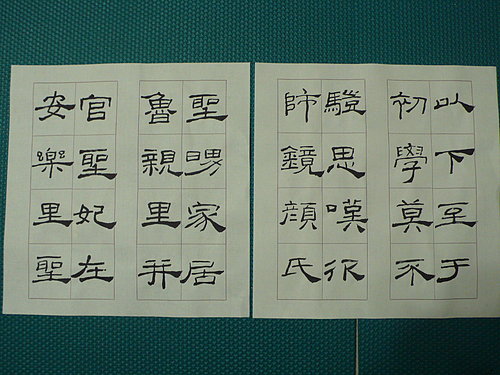 以下至于
初學莫不
驥思嘆卬
師鏡顏氏
聖舅家居
魯親里并
官聖妃在
安樂里聖